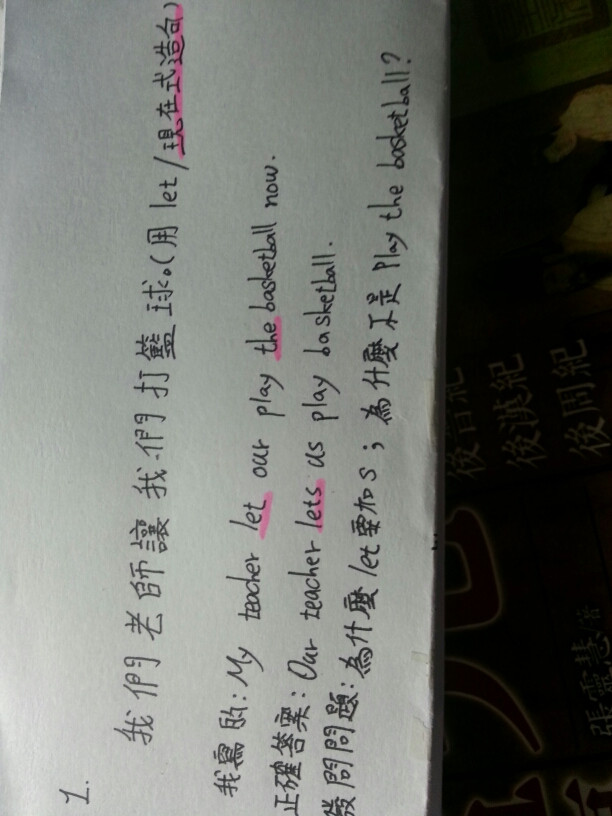 1.
我們老師讓我們打籃球。(用let/現在式造句)
我寫的:My teacher let our play the basketball now.
正確答案:Our teacher lets us play basketball.
發問問題:為什麼let要加s;為什麼不是Play the basketball?
後晉紀
後漢紀
後周紀
張靈慧 著